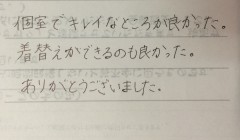 個室でキレイなところが良かった。
着替えができるのも良かった。
ありがとうございました。